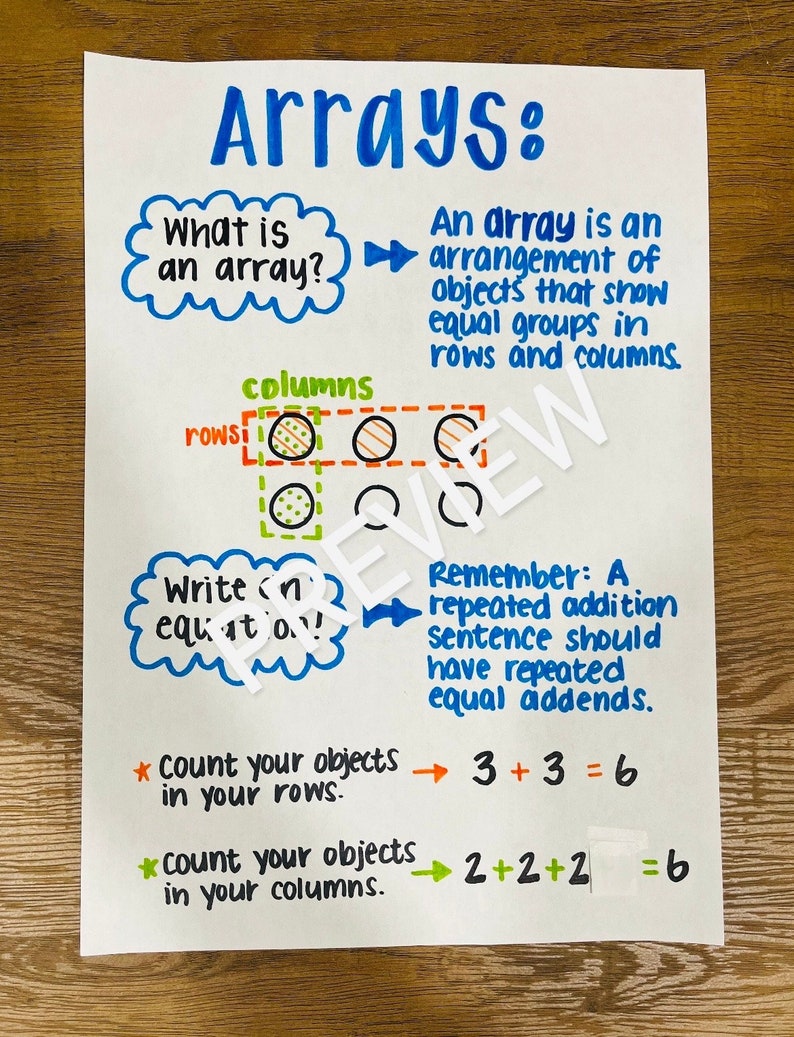 Arrays:
What is
an array?
An array is an
arrangement of
objects that show
equal groups in
rows and columns.
columns
rows
PREVIEW
Write an
equation!
Remember: A
repeated addition
sentence should
have repeated
equal addends.
* Count your objects
in your rows.
→ 3 + 3 = 6
* Count your objects
in your columns.
→ 2+2+2 = 6